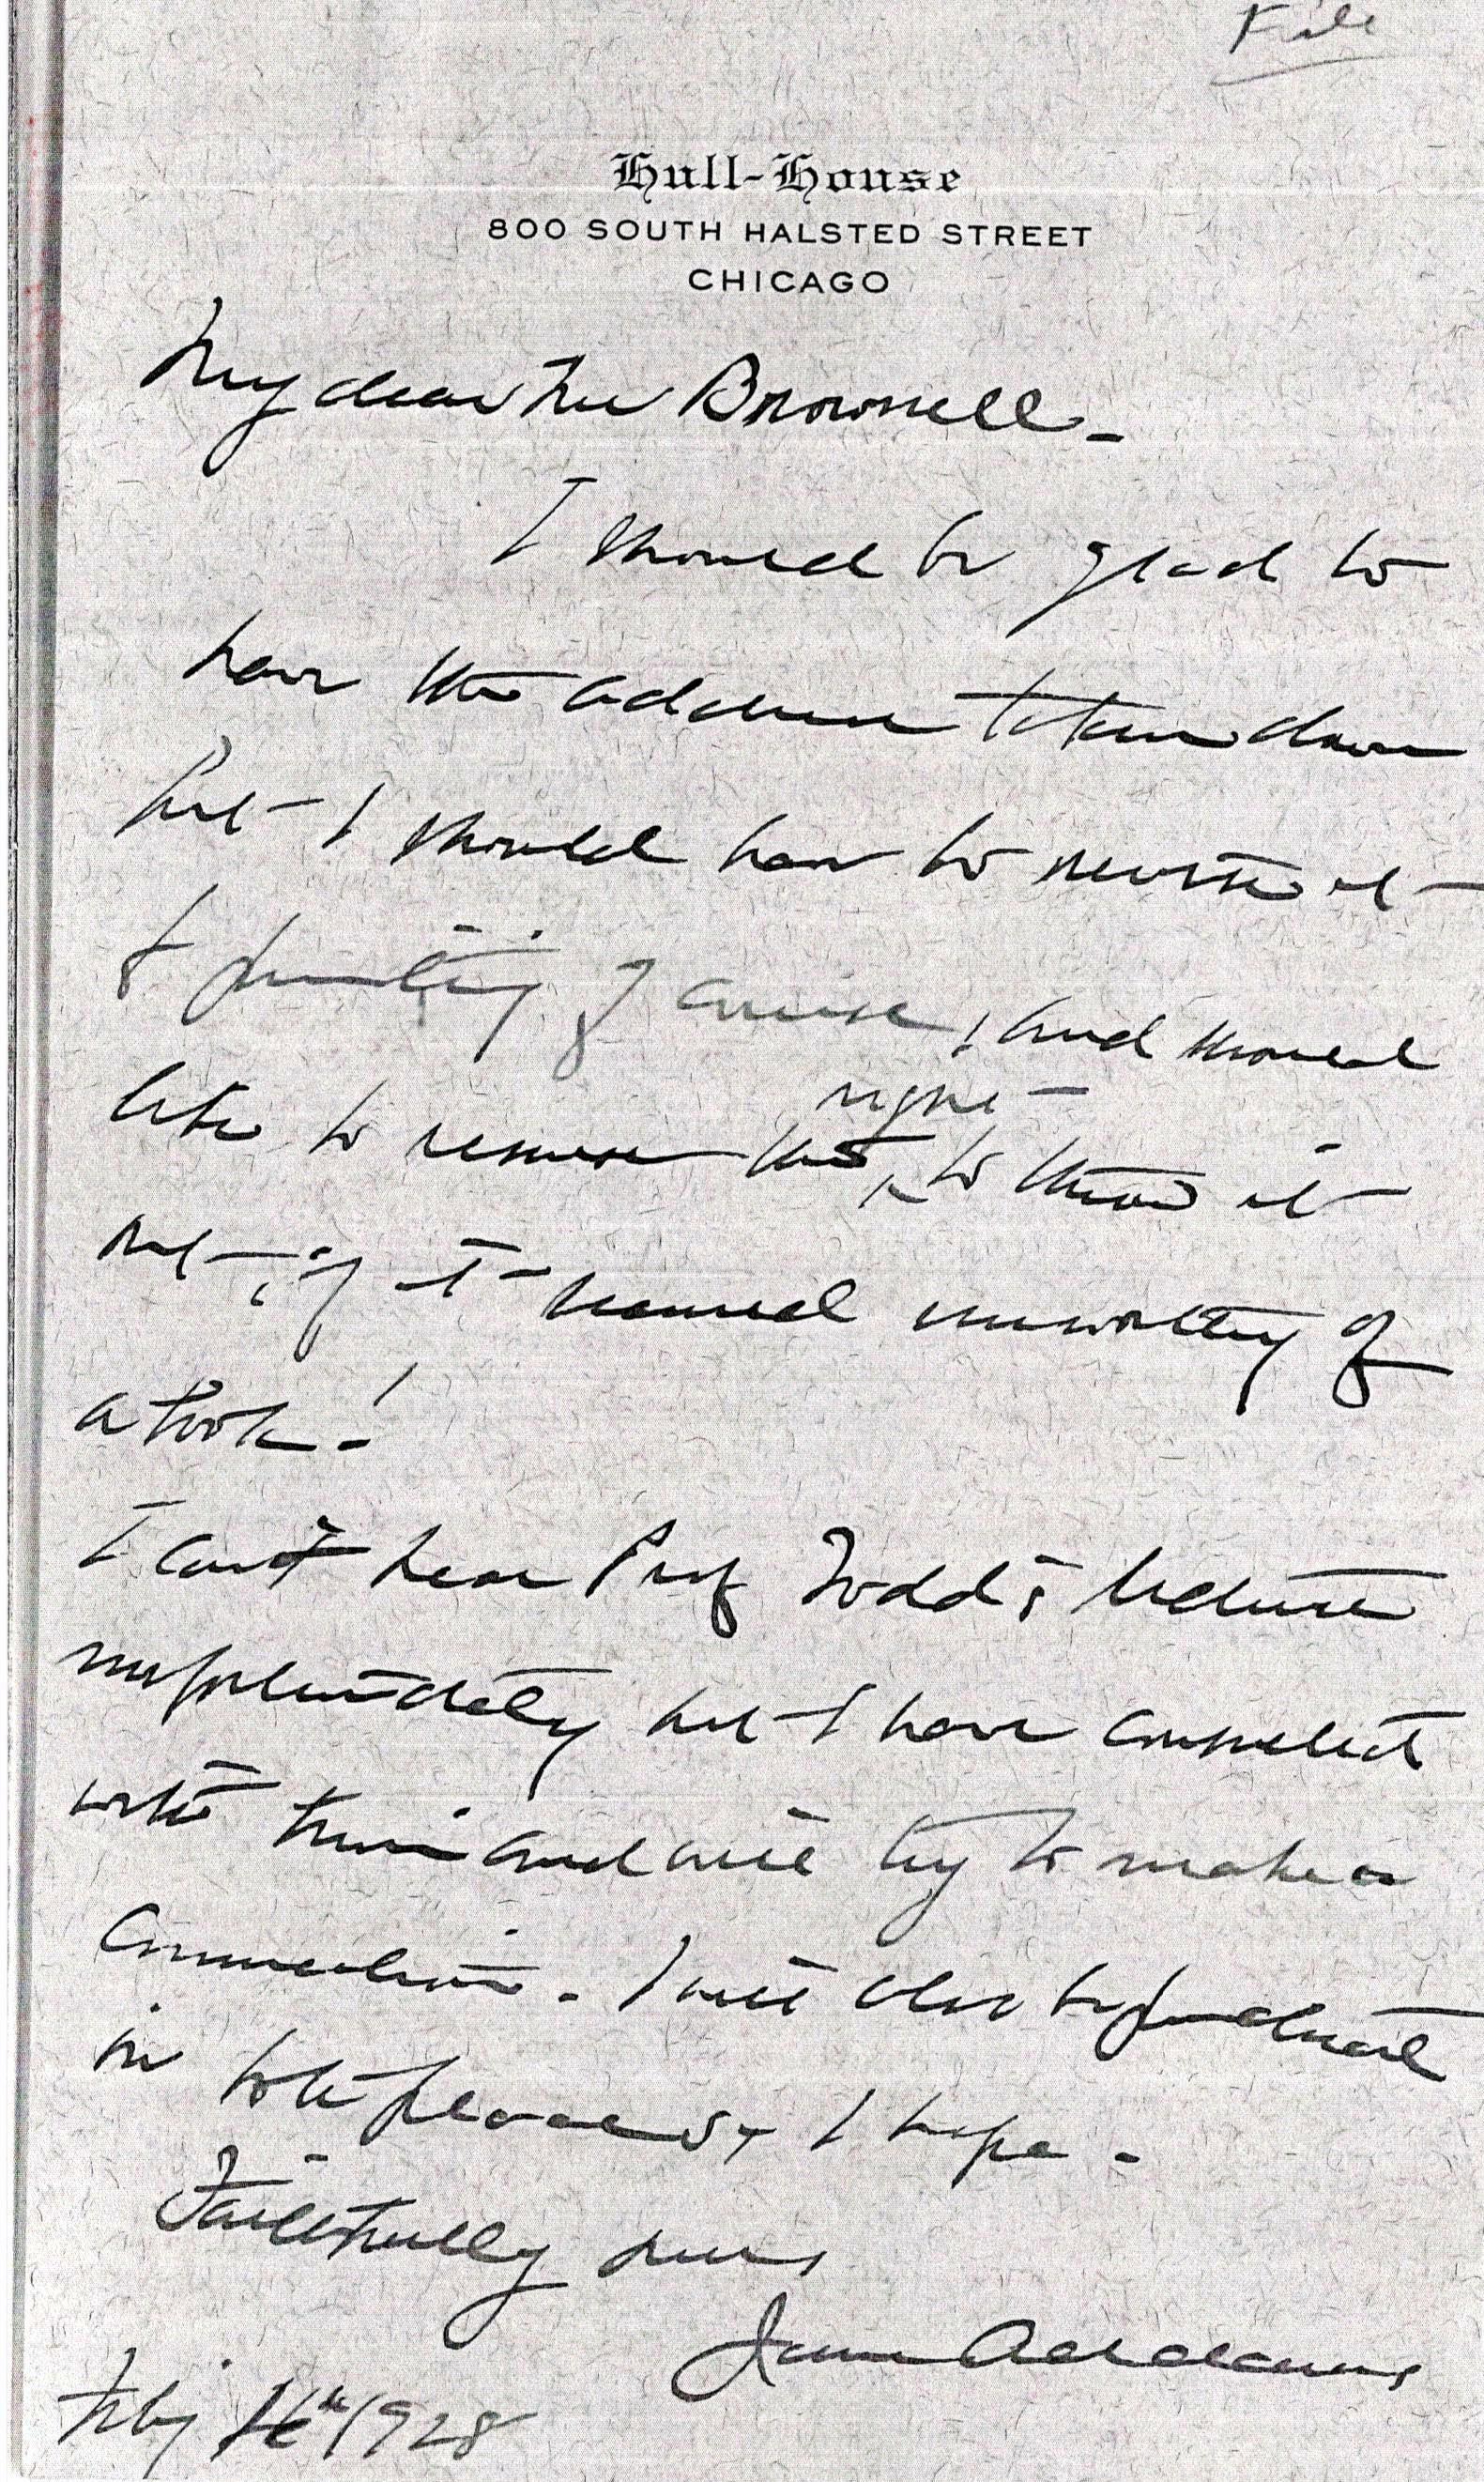 File
Hull-House
800 SOUTH HALSTED STREET
CHICAGO
My dear Mr Brownell -
I should be glad to
have the address taken down
but I should have to revise it
& printing of course, and should
right
like to reserve the to throw it
out, if it seemed unworthy of
a book!
I can't hear Prof Todd's lecture
unfortunately but I have consulted
with him and will try to make a
connection. I will also be punctual
in I hope.
Faithfully yours
Jane Addams
Feby 16th 1928